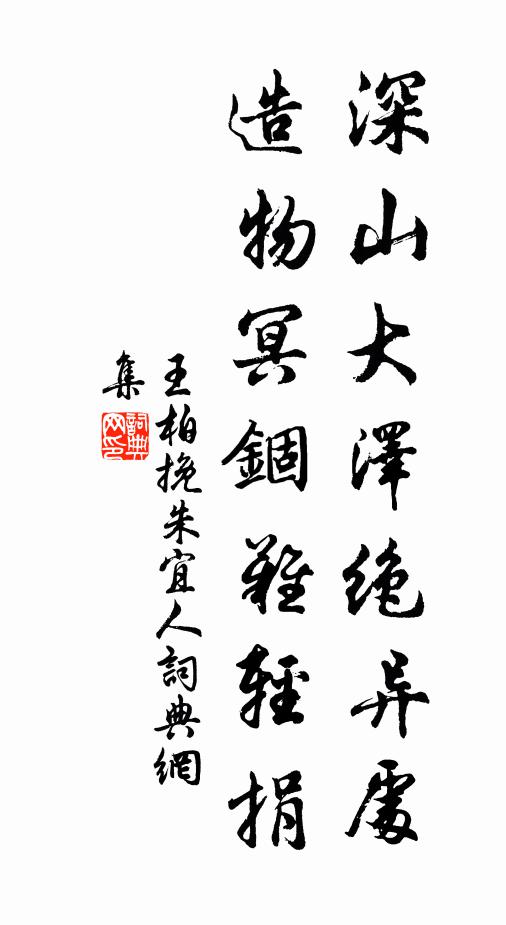 深山大澤絶异處
造物冥錮難輕捐
王柏挽朱宜人詞典網
集
詞典網印